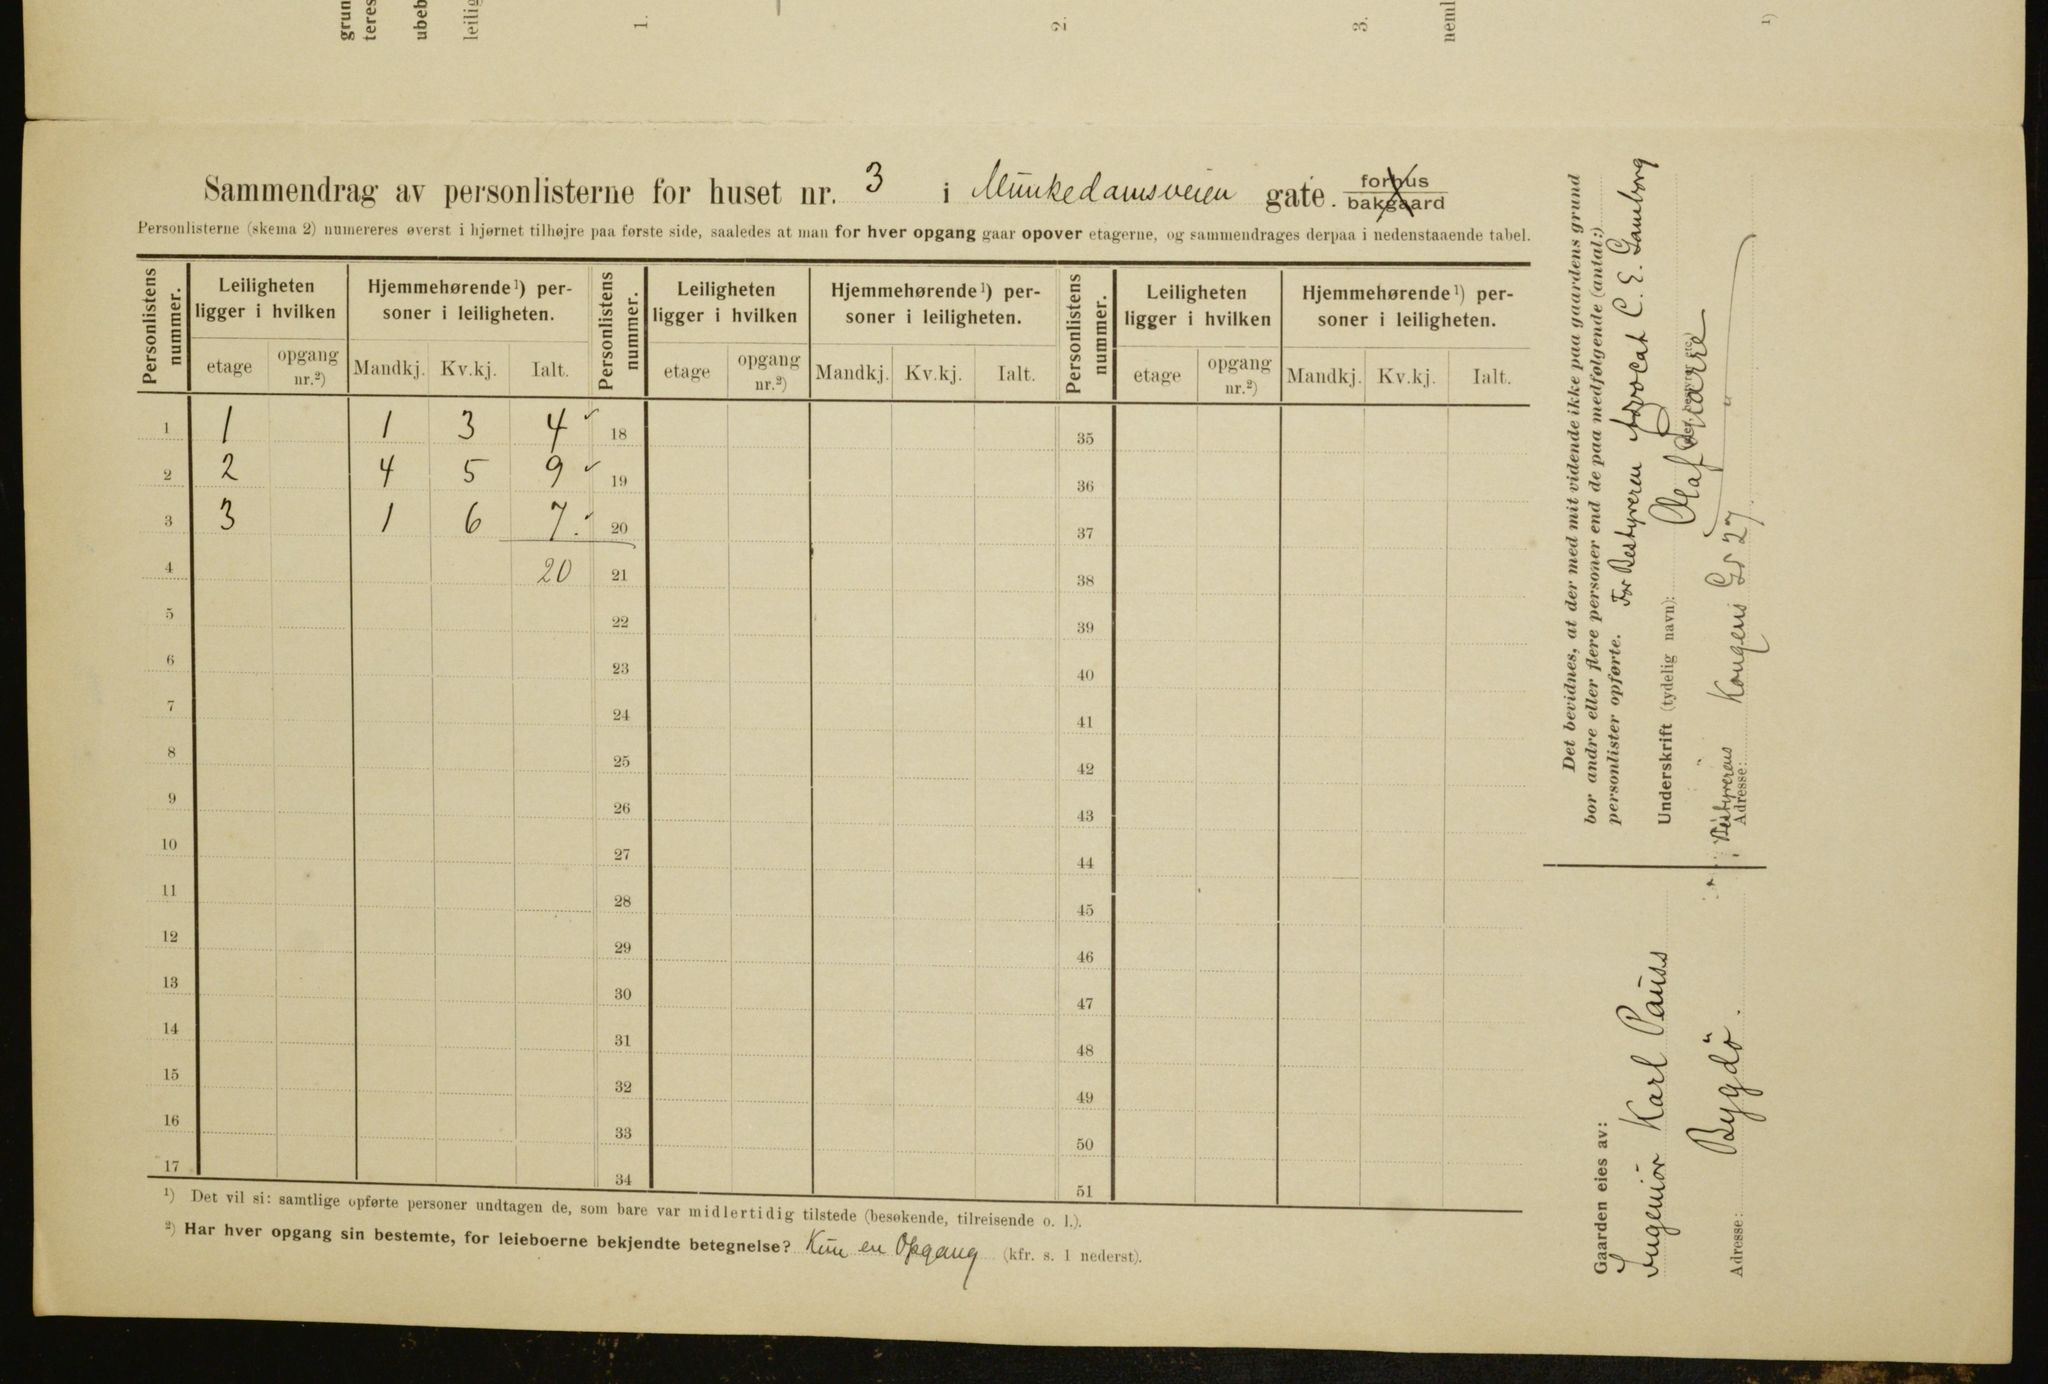 grun
teres
ubeb
leilig
1.
2.
3.
neml
1)
Sammendrag av personlisterne for huset nr. 3 i Munkedamsveien gate. forhus
bakgaard
Personlisterne (skema 2) numereres øverst i hjørnet tilhøjre paa første side, saaledes at man for hver opgang gaar opover etagerne, og sammendrages derpaa i nedenstaaende tabel.
Personlistens nummer. Leiligheten ligger i hvilken Hjemmehørende 1) personer i leiligheten. Personlistens nummer. Leiligheten ligger i hvilken Hjemmehørende 1) personer i leiligheten. Personlistens nummer. Leiligheten ligger i hvilken Hjemmehørende 1) personer i leiligheten.
etage opgang nr.2) Mandkj. Kv.kj. Ialt. etage opgang nr.2) Mandkj. Kv.kj. Ialt. etage opgang nr.2) Mandkj. Kv.kj. Ialt.
1 1 1 3 4 ✓ 18 35
2 2 4 5 9 ✓ 19 36
3 3 1 6 7. ✓ 20 37
4 20 21 38
5 22 39
6 23 40
7 24 41
8 25 42
9 26 43
10 27 44
11 28 45
12 29 46
13 30 47
14 31 48
15 32 49
16 33 50
17 34 51
1) Det vil si: samtlige opførte personer undtagen de, som bare var midlertidig tilstede (besøkende, tilreisende o. l.).
2) Har hver opgang sin bestemte, for leieboerne bekjendte betegnelse? Kun en Opgang (kfr. s. 1 nederst).
Det bevidnes, at der med mit vidende ikke paa gaardens grund
bor andre eller flere personer end de paa medfølgende (antal:)
personlister opførte. For Bestyreren Advocat C. E. Gamborg
Underskrift (tydelig navn): Olaf
Bestyrerens
Adresse: Kongens Gd 27
Gaarden eies av:
Ingeniør Karl Pauss
Adresse: Bygdö.